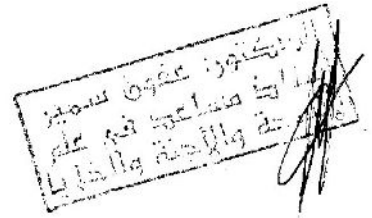 الدكتور: عفون سمير
مساعد في علم
والأجنة والخلايا